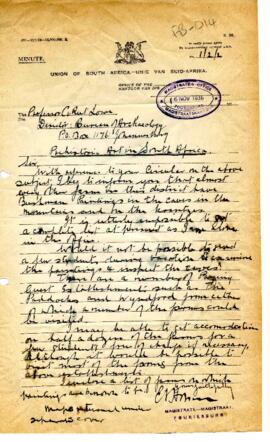 RB-D14
MINUTE.
1/2/2
UNION OF SOUTH AFRICA.—UNIE VAN SUID-AFRIKA.
OFFICE OF THE
KANTOOR VAN DIE
MAGISTRATE'S OFFICE
NOV 1936
Professor C. van Riet Lowe
Director: Bureau of Archaeology
P.O. Box 1176 Johannesburg
Prehistoric Art in South Africa
Sir,
With reference to your Circular on the above
subject, I beg to inform you that almost
every farm in this district have
Bushman Paintings in the caves in the
mountains and on the
It is utterly impossible to get
a complete list at present as I am alone
in the office.
Would it not be possible to send
a few students during vacation to examine
the paintings & inspect the caves?
There are a number of
Guest Establishments such as The
and Wyndford from either
of which a number of the farms could
be visited.
I may be able to get accommodation
on half a dozen of the farms for a
few students free of charge if necessary,
although it would be possible to
visit most of the farms from the
above establishments.
I enclose a list of farms on which
paintings are known to be.
Map returned under
separate cover
MAGISTRATE-MAGISTRAAT,
FOURIESBURG